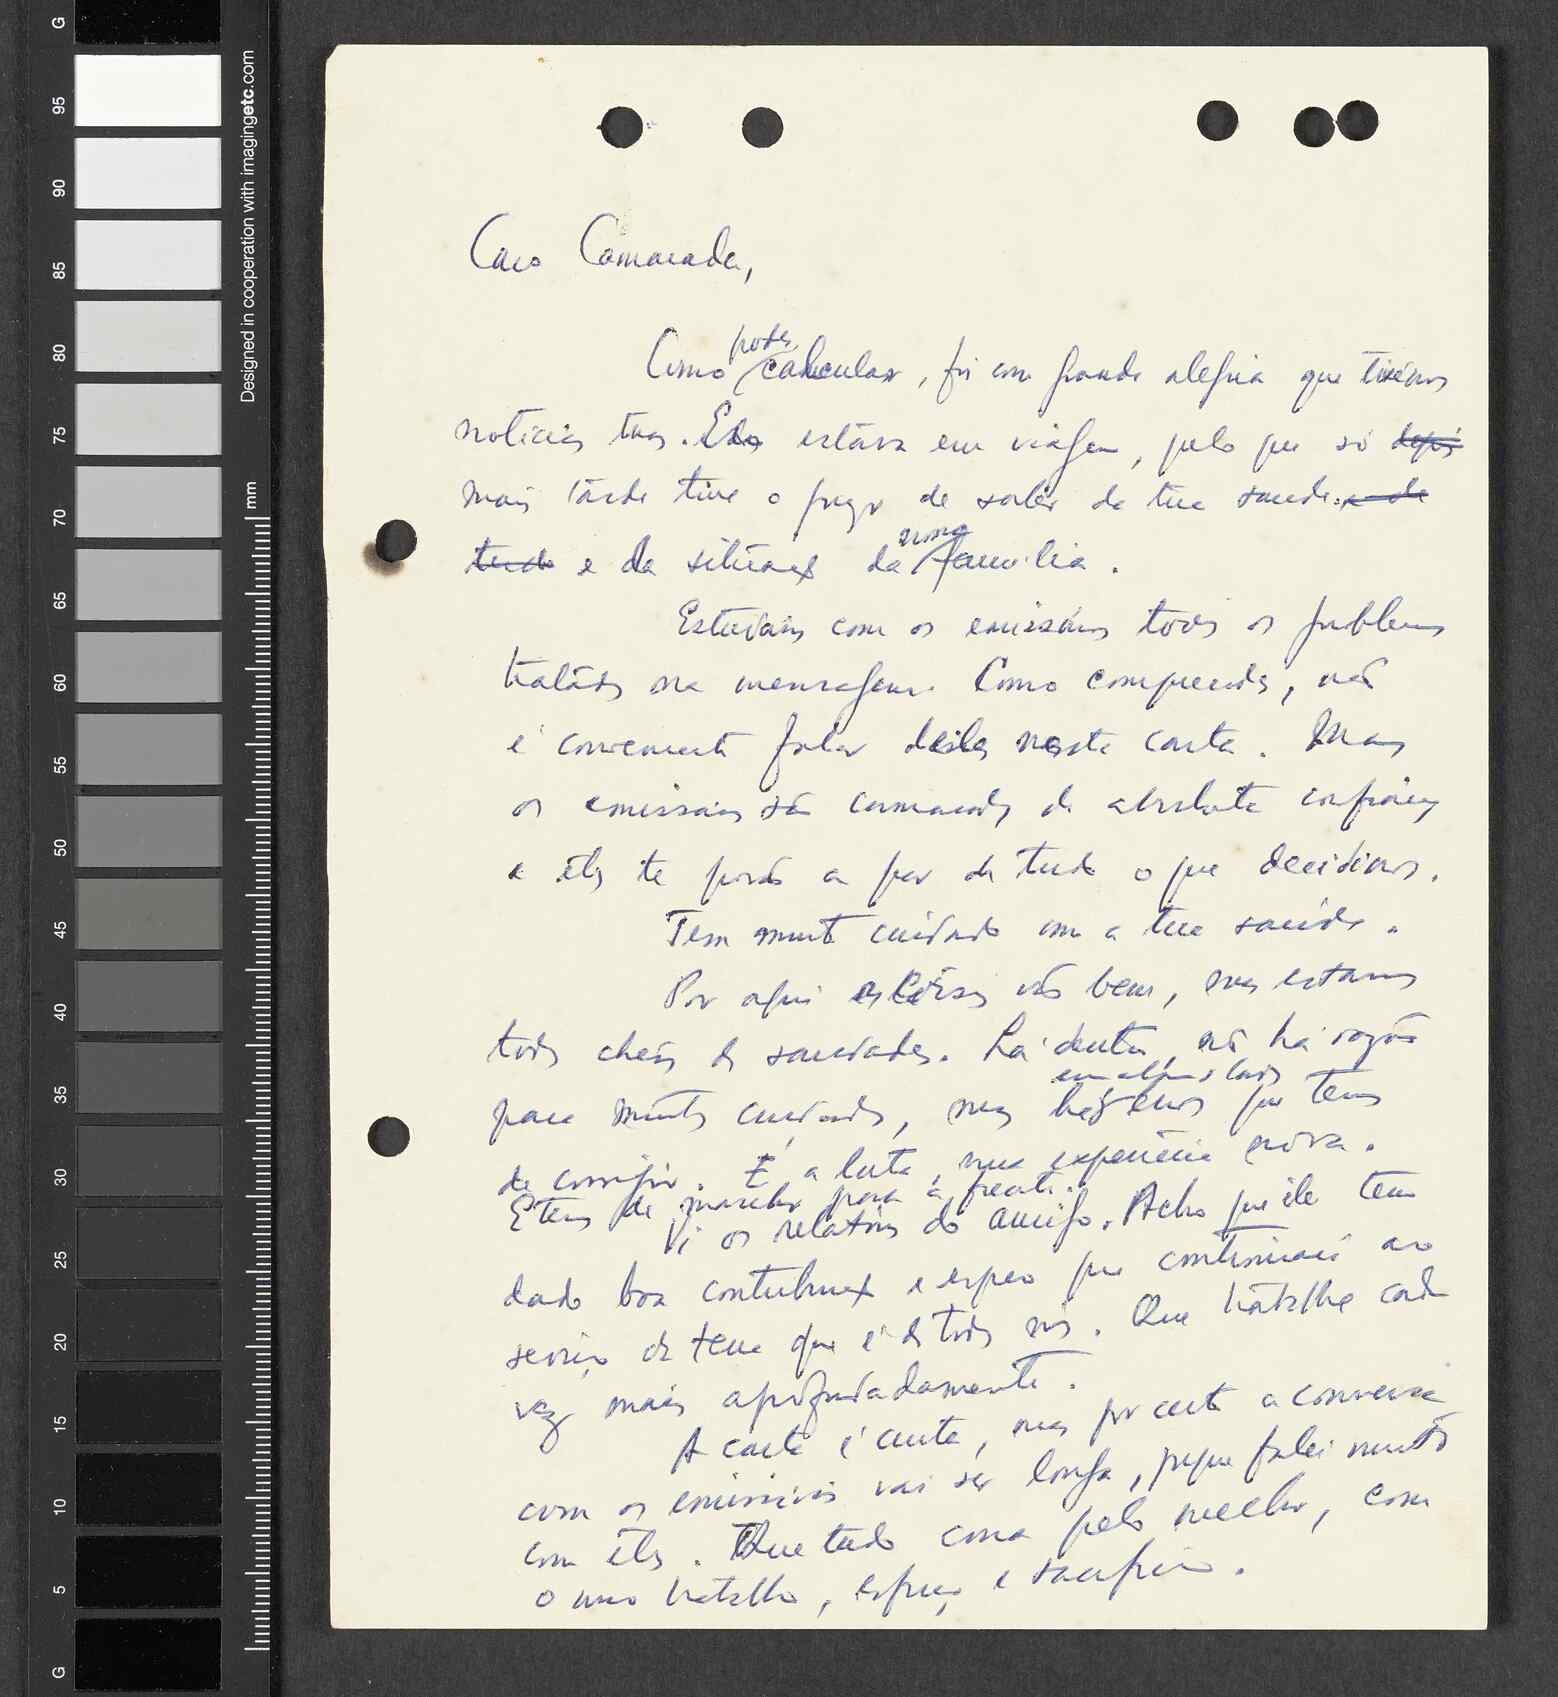 Caro Camarada,
Como podes calcular, foi com grande alegria que tivémos
notícias tuas. Eu estava em viagem, pelo que só depois
mais tarde tive o prazer de saber da tua saude. e de
tudo e da situação da nossa família.
Estudáis com os emissários todos os problemas
tratados na mensagem. Como compreendes, não
é conveniente falar deles nesta carta. Mas
os emissários são camaradas de absoluta confiança
e êles te porão a par de tudo o que decidimos.
Tem muito cuidado com a tua saúde.
Por aqui as coisas vão bem, mas estamos
todos cheios de saudades. Lá dentro, não há razão
em alguns lados
para muitos cuidados, mas há erros que temos
de corrigir. É a luta, uma experiência nova.
E tem de marchar para a frente.
Vi os relatórios do amigo. Acho que êle tem
dado boa contribuição e espero que continuará ao
serviço da terra que é de todos nós. Que trabalhe cada
vez mais aprofundadamente.
A carta é curta, mas por certo a conversa
com os emissários vai ser longa, porque falei muito
com êles. Que tudo corra pelo melhor, com
o nosso trabalho, esforço e sacrifício.
Designed in cooperation with imagingetc.com
mm
G
95
90
85
80
75
70
65
60
55
50
45
40
35
30
25
20
15
10
5
G